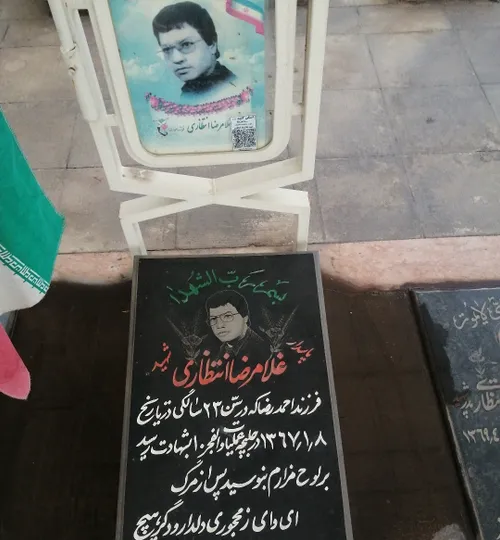 غلامرضا انتظاری
بسم رب الشهدا
شهید
غلامرضا انتظاری
فرزند احمدرضا که در سن ۲۳ سالگی در تاریخ
۱۳۶۷/۱/۸ در حلبچه عملیات والفجر ۱۰ بشهادت رسید
بر لوح مزارم بنویسید پس از مرگ
ای وای ز مجوری دلدار و دگر هیچ
۱۳۶۹/۴